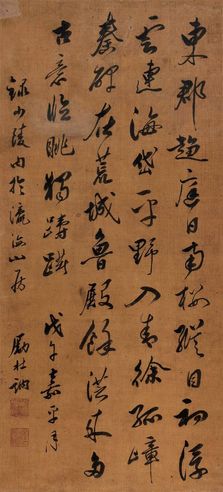 東郡趨庭日南樓縱目初浮
雲連海岱平野入青徐孤嶂
秦碑在荒城魯殿餘從來多
古意臨眺獨躊躇 戊午嘉平月
錄少陵 於 山房 勵杜訥